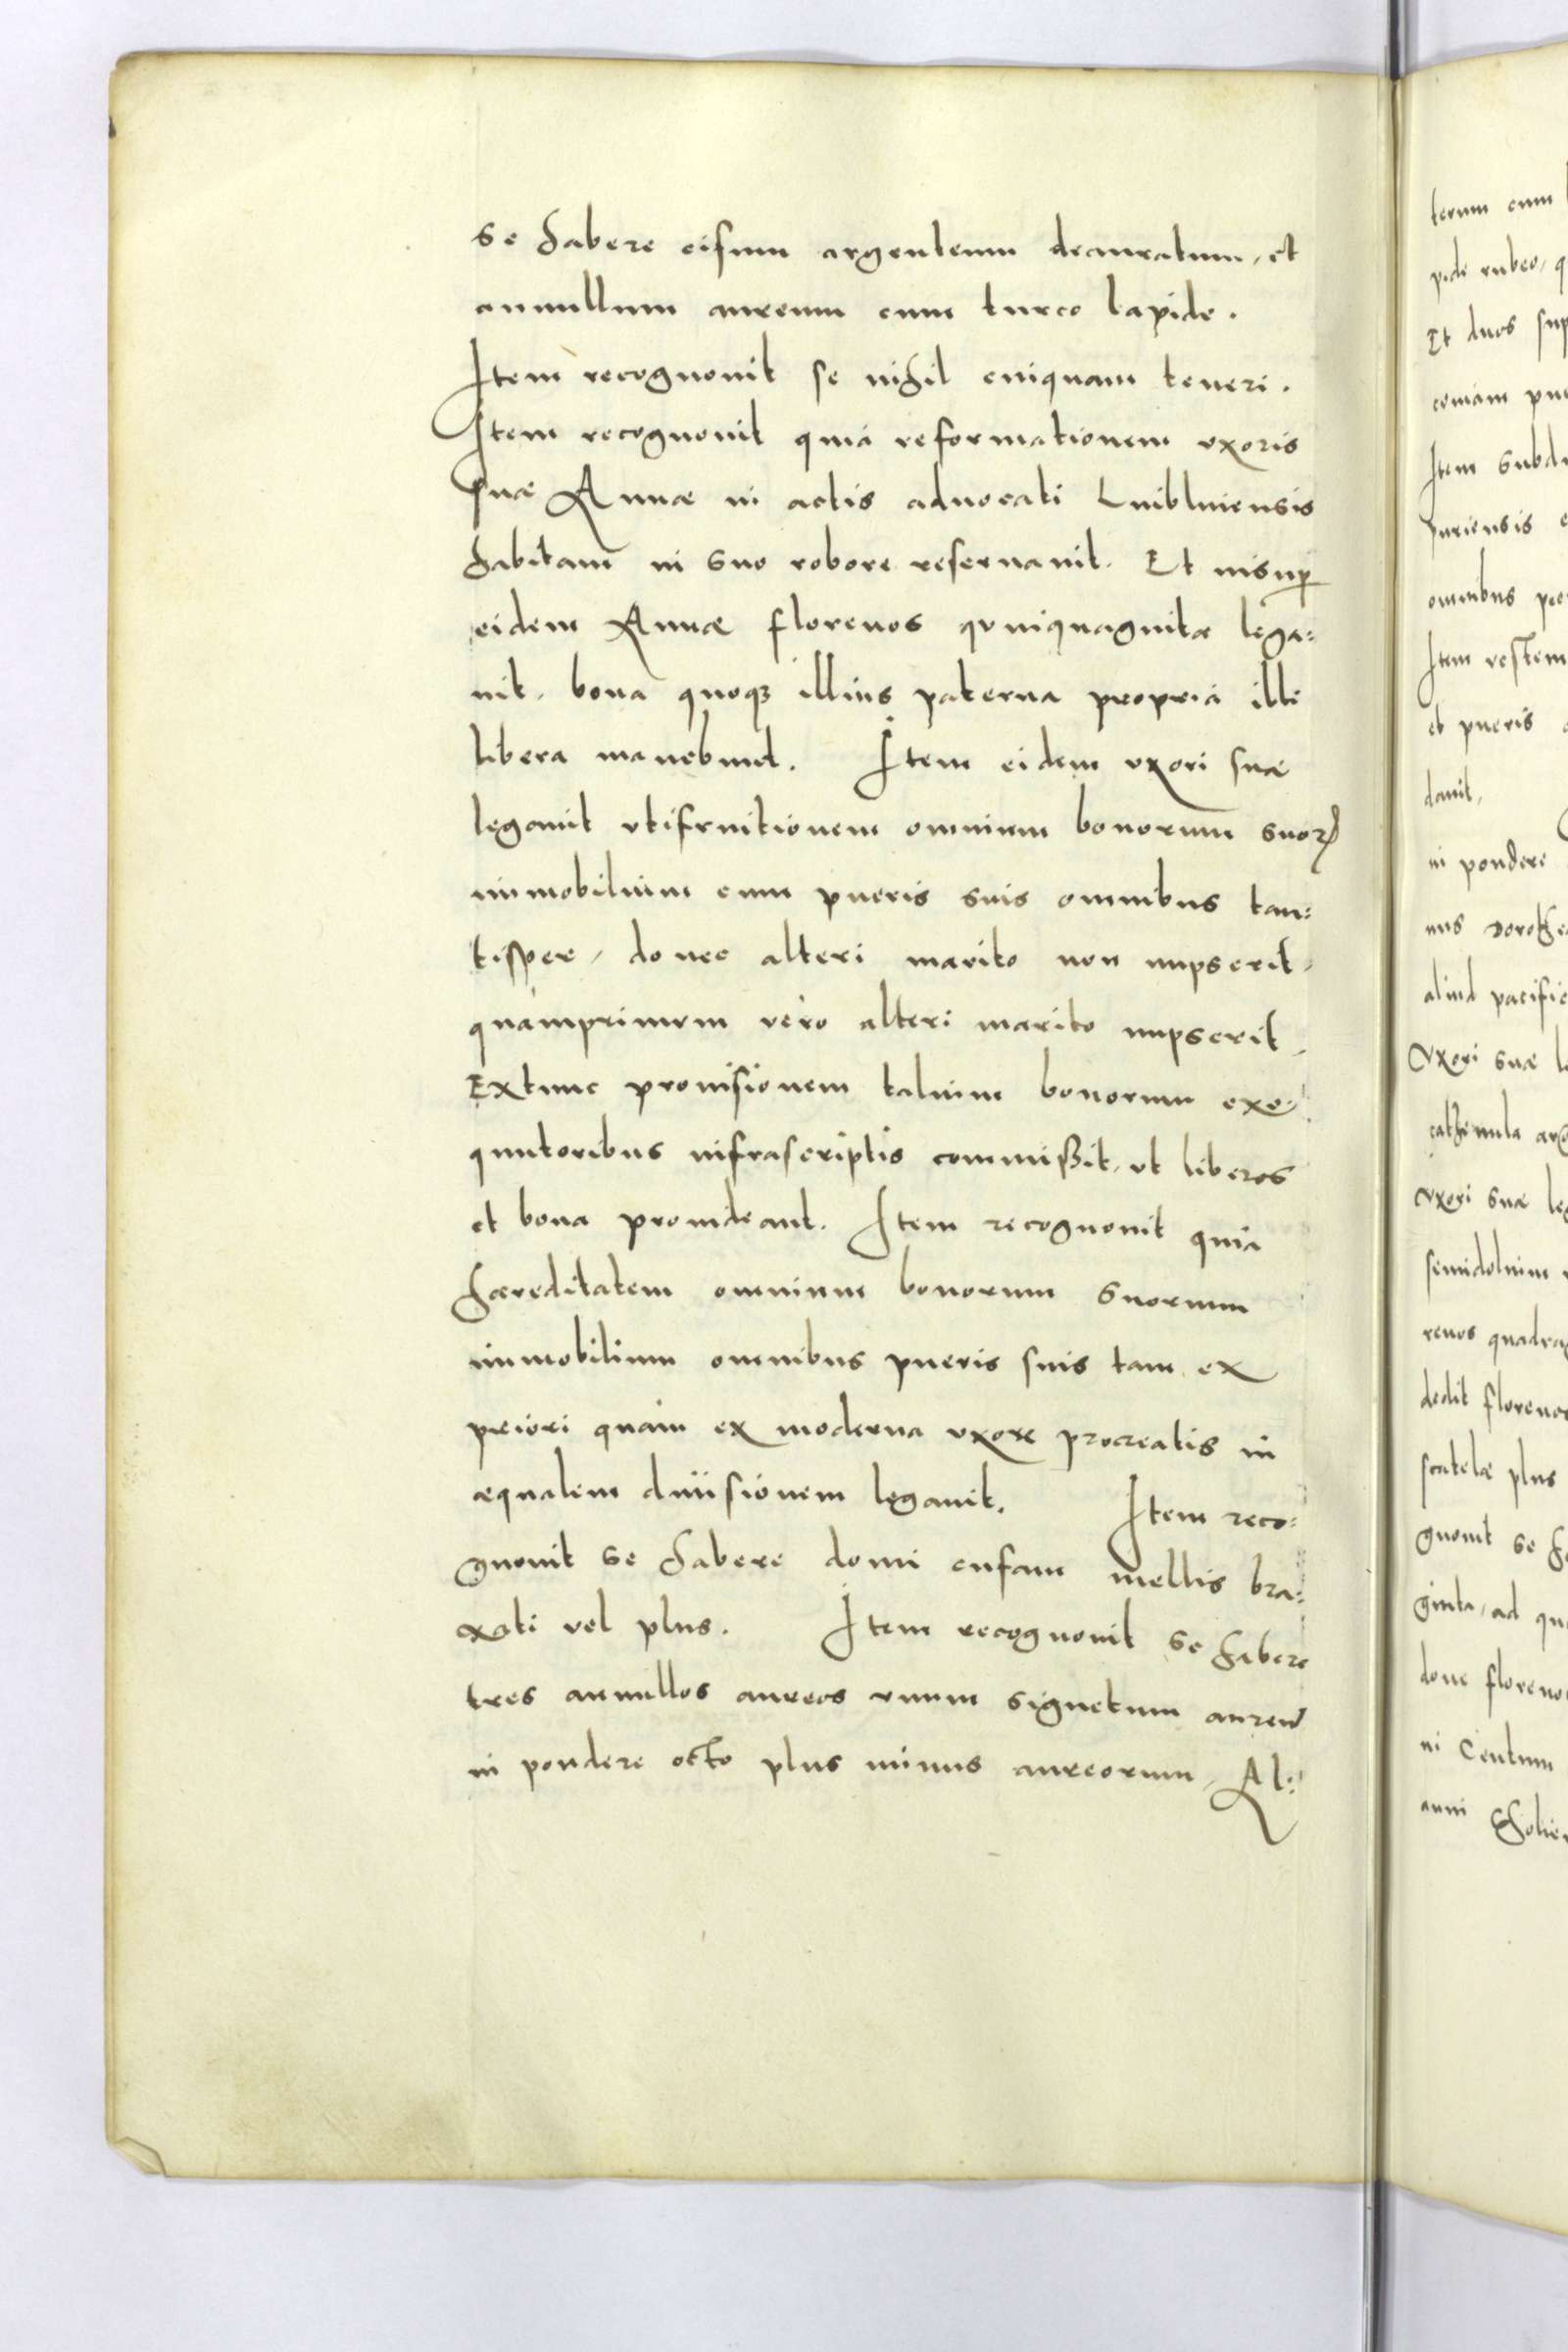 se habere cifum argenteum deauratum, et
annullum aureum cum turco lapide.
Item recognouit se nihil cuiquam teneri.
Item recognouit quia reformationem vxoris
suæ Annæ in actis aduocati Lublinensis
habitam in suo robore reseruauit. Et insup
eidem Annæ florenos quinquaginta lega=
uit, bona quoqȝ illius paterna propria illi
libera manebunt. Item eidem vxori suæ
legauit vtifruitionem omnium bonorum suorꝝ
immobilium cum pueris suis omnibus tan=
tisper, donec alteri marito non nupserit,
quamprimum vero alteri marito nupserit,
Extunc prouisionem talium bonorum exe=
quutoribus infrascriptis commißit, vt liberos
et bona prouideant. Item recognouit quia
hæreditatem omnium bonorum suorum
immobilium omnibus pueris suis tam ex
priori quam ex moderna vxore procreatis in
æqualem diuisionem legauit. Item reco=
gnouit se habere domi cufam mellis bra=
xati vel plus. Item recognouit se habere
tres annullos aureos vnum signetum aureū
in pondere octo plus minus aureorum, Al=
terum cum
pide rubeo, q
Et duos sup
coniam pu
Item subdu
puriensis
omnibus
Item vestem
et pueris
dauit,
in pondere
nus Dorothe
aliud pacific
Vxori suæ l
cathenula arg
vxori suæ leg
semidolium
renos quadrag
dedit floreno
scatelæ plus
gnouit se h
ginta, ad qu
doue floreno
ni Centum
anni